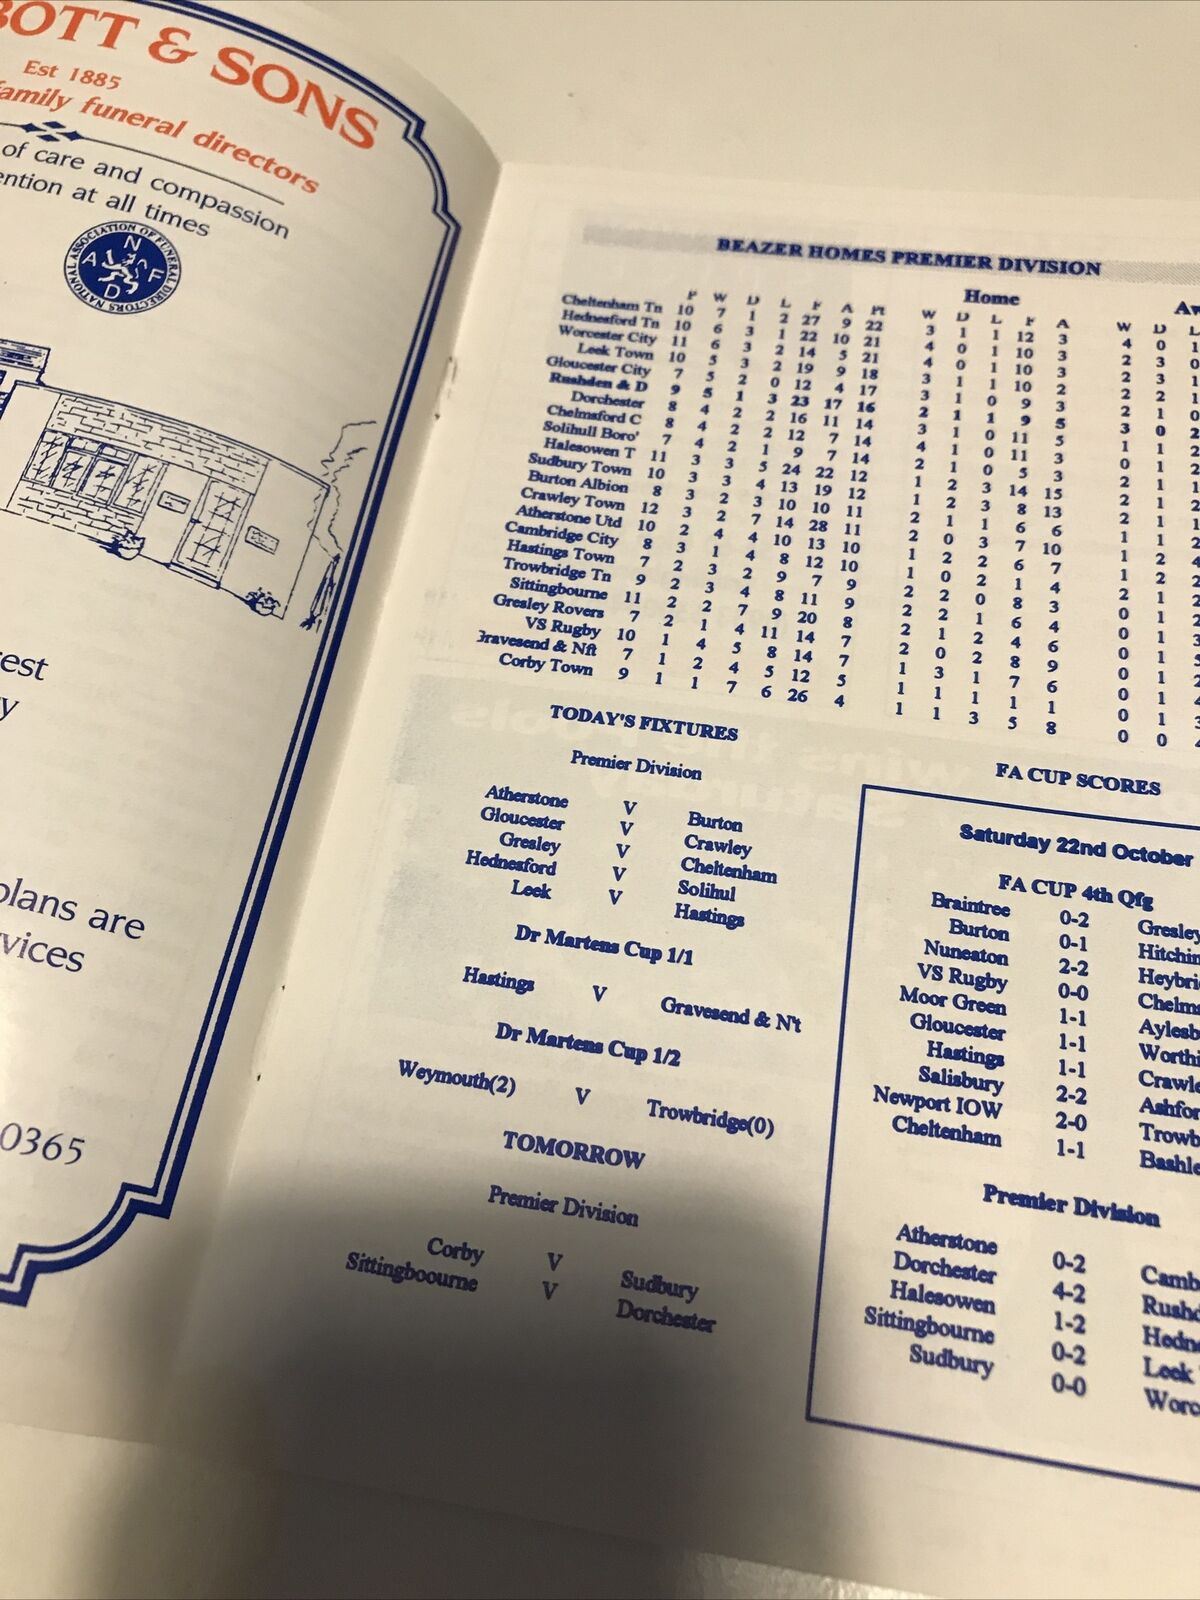 BOTT & SONS
Est 1885
family funeral directors
of care and compassion
ention at all times
NATIONAL ASSOCIATION OF FUNERAL DIRECTORS
N A F D
rest
y
plans are
rvices
0365
BEAZER HOMES PREMIER DIVISION
Home Aw
P W D L F A Pt W D L F A W D L
Cheltenham Tn 10 7 1 2 27 9 22 3 1 1 12 3 4 0 1
Hednesford Tn 10 6 3 1 22 10 21 4 0 1 10 3 2 3 0
Worcester City 11 6 3 2 14 5 21 4 0 1 10 3 2 3 1
Leek Town 10 5 3 2 19 9 18 3 1 1 10 2 2 2 1
Gloucester City 7 5 2 0 12 4 17 3 1 0 9 3 2 1 0
Rushden & D 9 5 1 3 23 17 16 2 1 1 9 5 3 0 2
Dorchester 8 4 2 2 16 11 14 3 1 0 11 5 1 1 2
Chelmsford C 8 4 2 2 12 7 14 4 1 0 11 3 0 1 2
Solihull Boro' 7 4 2 1 9 7 14 2 1 0 5 3 2 1 1
Halesowen T 11 3 3 5 24 22 12 1 2 3 14 15 2 1 2
Sudbury Town 10 3 3 4 13 19 12 1 2 3 8 13 2 1 1
Burton Albion 8 3 2 3 10 10 11 2 1 1 6 6 1 1 2
Crawley Town 12 3 2 7 14 28 11 2 0 3 7 10 1 2 4
Atherstone Utd 10 2 4 4 10 13 10 1 2 2 6 7 1 2 2
Cambridge City 8 3 1 4 8 12 10 1 0 2 1 4 2 1 2
Hastings Town 7 2 3 2 9 7 9 2 2 0 8 3 0 1 2
Trowbridge Tn 9 2 3 4 8 11 9 2 2 1 6 4 0 1 3
Sittingbourne 11 2 2 7 9 20 8 2 1 2 4 6 0 1 5
Gresley Rovers 7 2 1 4 11 14 7 2 0 2 8 9 0 1 2
VS Rugby 10 1 4 5 8 14 7 1 3 1 7 6 0 1 4
Gravesend & Nft 7 1 2 4 5 12 5 1 1 1 1 1 0 1 3
Corby Town 9 1 1 7 6 26 4 1 1 3 5 8 0 0 4
TODAY'S FIXTURES
Premier Division
Atherstone V Burton
Gloucester V Crawley
Gresley V Cheltenham
Hednesford V Solihul
Leek V Hastings
Dr Martens Cup 1/1
Hastings V Gravesend & N't
Dr Martens Cup 1/2
Weymouth(2) V Trowbridge(0)
TOMORROW
Premier Division
Corby V Sudbury
Sittingboourne V Dorchester
FA CUP SCORES
Saturday 22nd October
FA CUP 4th Qfg
Braintree 0-2 Gresley
Burton 0-1 Hitchin
Nuneaton 2-2 Heybri
VS Rugby 0-0 Chelms
Moor Green 1-1 Aylesb
Gloucester 1-1 Worthi
Hastings 1-1 Crawle
Salisbury 2-2 Ashfor
Newport IOW 2-0 Trowb
Cheltenham 1-1 Bashle
Premier Division
Atherstone 0-2 Camb
Dorchester 4-2 Rushd
Halesowen 1-2 Hedne
Sittingbourne 0-2 Leek
Sudbury 0-0 Worc